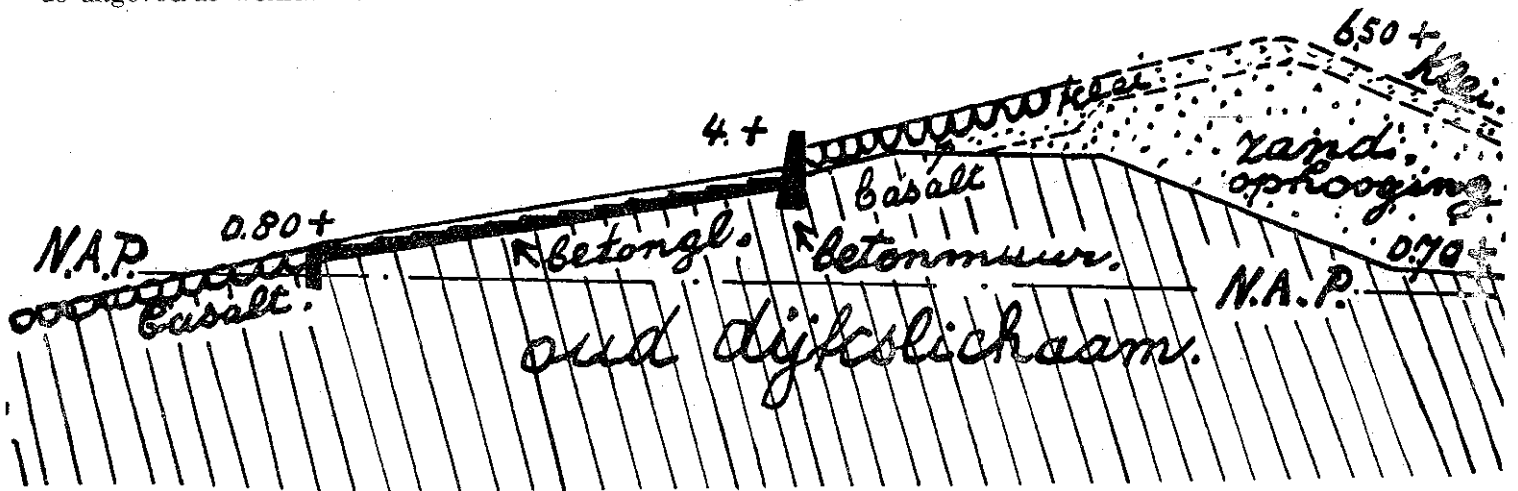 6.50 +
klei.
klei
4. +
zand.
ophooging
basalt
0.80 +
N.A.P.
betongl.
betonmuur.
0.70 +
basalt.
N.A.P.
oud dijkslichaam.